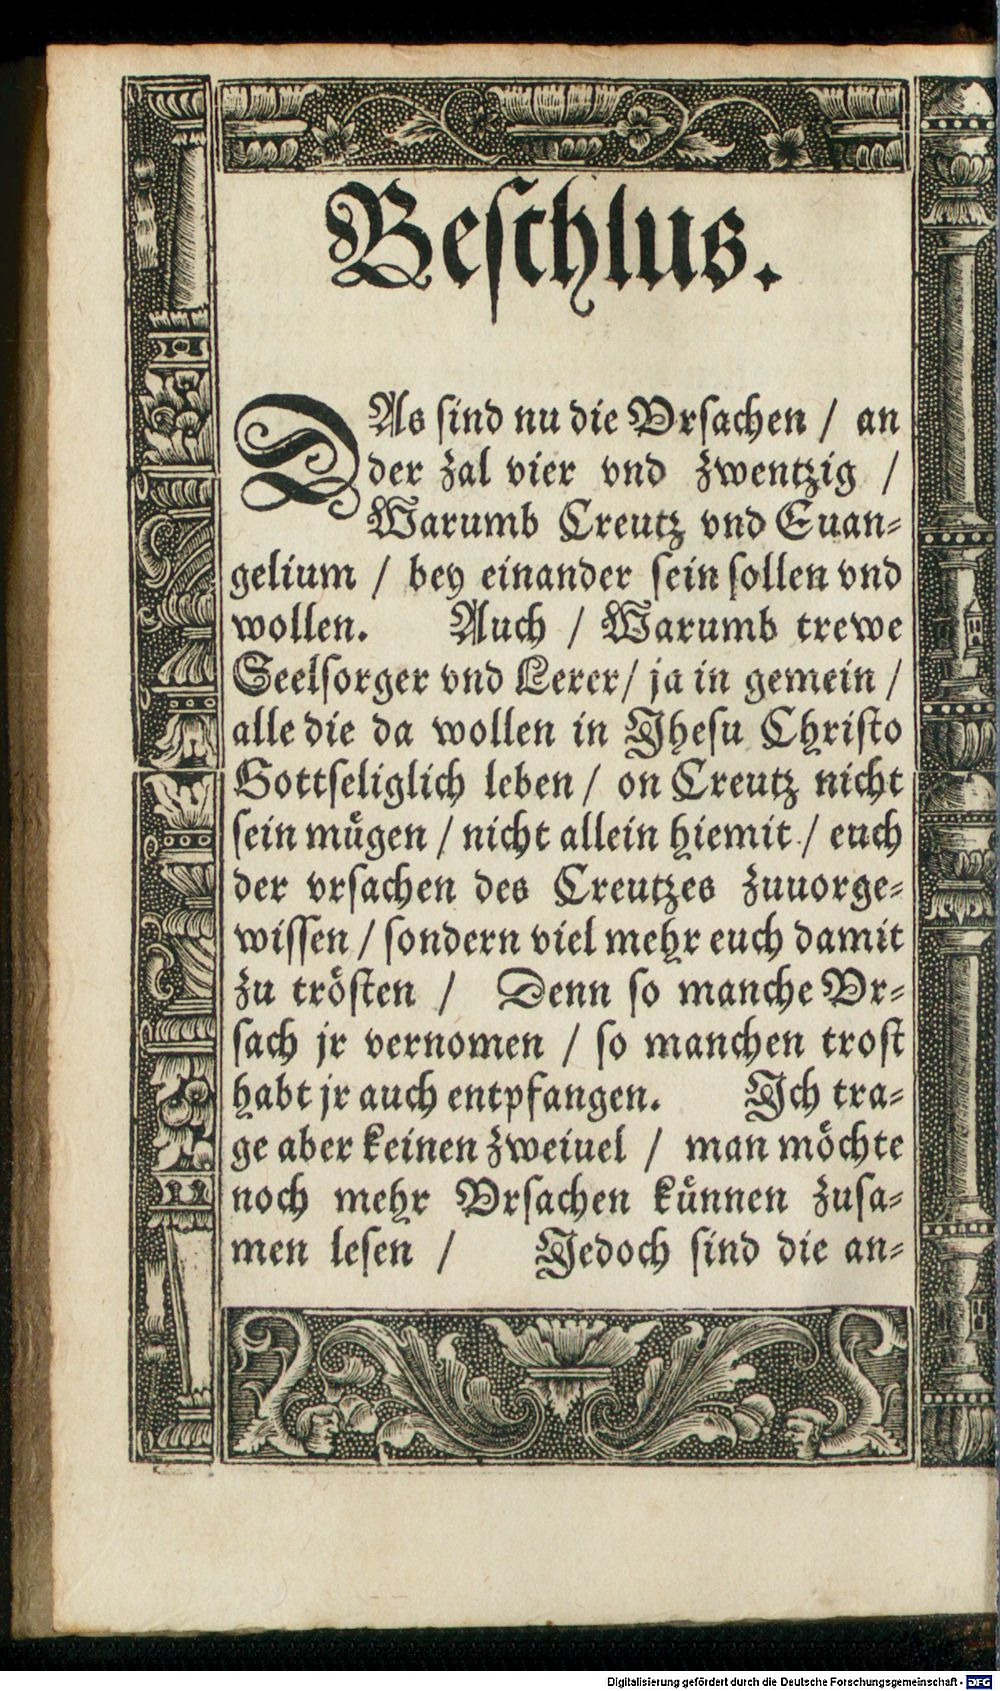 Beſchlus.
DAs ſind nu die Vrſachen / an
der zal vier vnd zwentzig /
Warumb Creutz vnd Euan-
gelium / bey einander ſein ſollen vnd
wollen. Auch / Warumb trewe
Seelſorger vnd Lerer / ja in gemein /
alle die da wollen in Jheſu Chriſto
Gottſeliglich leben / on Creutz nicht
ſein mügen / nicht allein hiemit / euch
der vrſachen des Creutzes zuuorge-
wiſſen / ſondern viel mehr euch damit
zu tröſten / Denn ſo manche Vr-
ſach jr vernomen / ſo manchen troſt
habt jr auch entpfangen. Ich tra-
ge aber keinen zweiuel / man möchte
noch mehr Vrſachen künnen zuſa-
men leſen / Jedoch ſind die an-
Digitalisierung gefördert durch die Deutsche Forschungsgemeinschaft - DFG